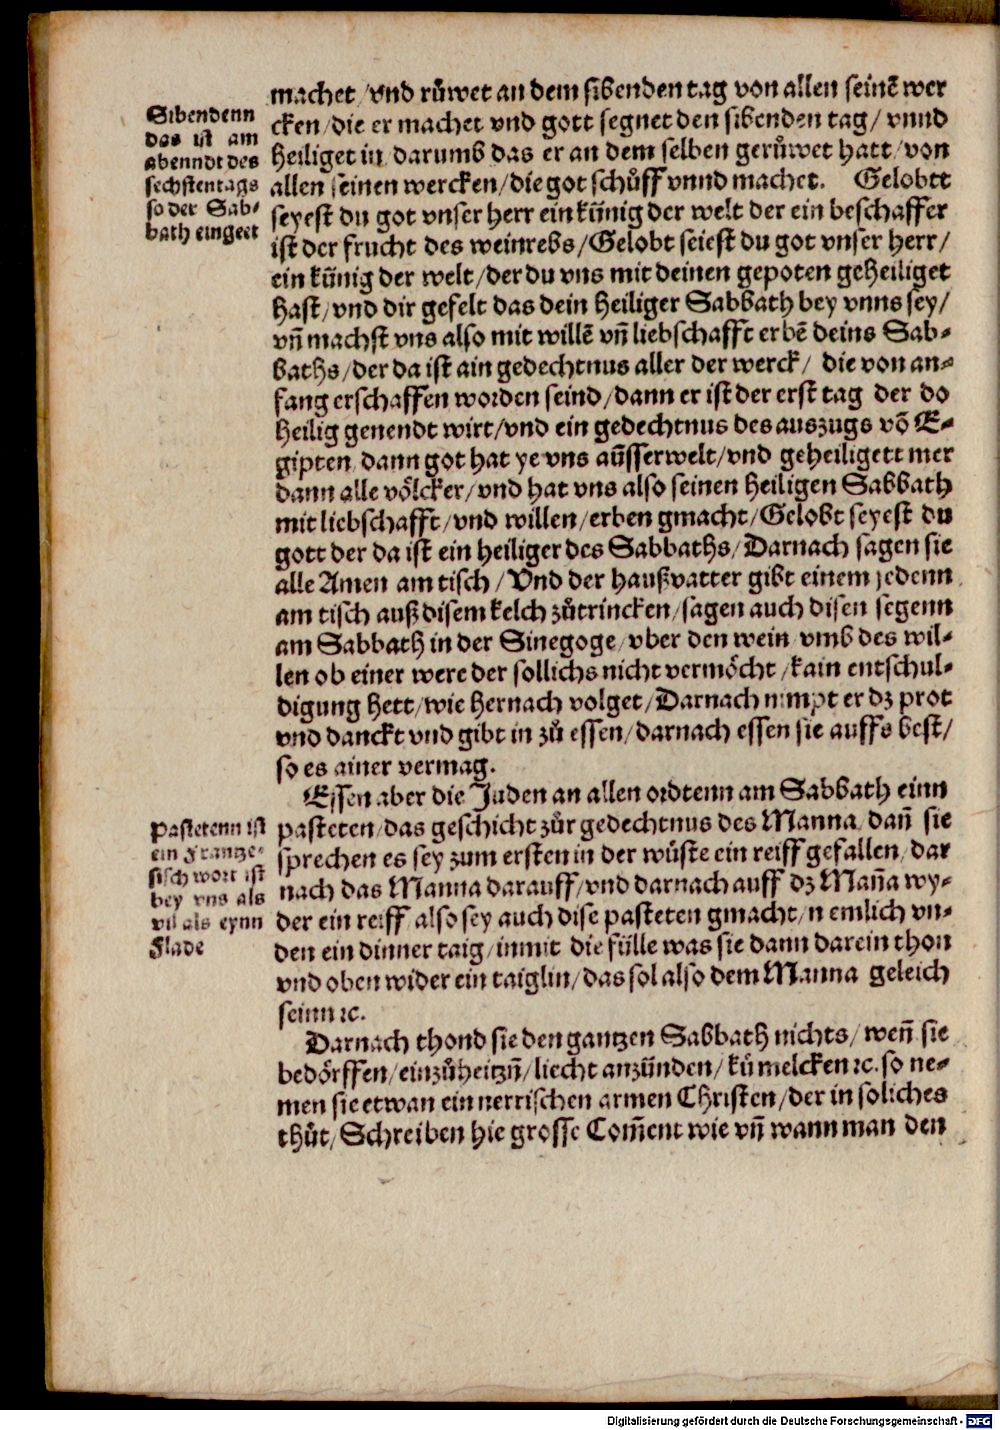 machet / vnd růwet an dem sibenden tag von allen seinē wer
cken / die er machet vnd gott segnet den sibenden tag / vnnd
heiliget in darumb das er an dem selben gerůwet hatt / von
allen seinen wercken / die got schůff vnnd machet. Gelobtt
seyest du got vnser herr ein künig der welt der ein beschaffer
ist der frucht des weinrebs / Gelobt seiest du got vnser herr /
ein künig der welt / der du vns mit deinen gepoten geheiliget
hast / vnd dir gefelt das dein heiliger Sabbath bey vnns sey /
vn̄ machst vns also mit willē vn̄ liebschafft erbē deins Sab-
baths / der da ist ain gedechtnus aller der werck / die von an-
fang erschaffen worden seind / dann er ist der erst tag der do
heilig genendt wirt / vnd ein gedechtnus des auszugs vō E-
gipten dann got hat ye vns aüsserwelt / vnd geheiligett mer
dann alle völcker / vnd hat vns also seinen heiligen Sabbath
mit liebschafft / vnd willen / erben gmacht / Gelobt seyest du
gott der da ist ein heiliger des Sabbaths / Darnach sagen sie
alle Amen am tisch / Vnd der haußvatter gibt einem jedenn
am tisch auß disem kelch zůtrincken / sagen auch disen segenn
am Sabbath in der Sinegoge / vber den wein vmb des wil-
len ob einer were der sollichs nicht vermöcht / kain entschul-
digung hett / wie hernach volget / Darnach nimpt er dz prot
vnd danckt vnd gibt in zů essen / darnach essen sie auffs best /
so es ainer vermag.
Essen aber die Juden an allen ordtenn am Sabbath einn
pasteten / das geschicht zůr gedechtnus des Manna dan̄ sie
sprechen es sey zum ersten in der wüste ein reiff gefallen / dar
nach das Manna darauff / vnd darnach auff dz Man̄a wy-
der ein reiff also sey auch dise pasteten gmacht / nemlich vn-
den ein dinner taig / inmit die fülle was sie dann darein thon
vnd oben wider ein taiglin / das sol also dem Manna geleich
seinn ꝛc.
Darnach thond sie den gantzen Sabbath nichts / wen̄ sie
bedörffen / einzůheitzn̄ / liecht anzünden / kü melcken ꝛc. so ne-
men sie etwan ein nerrischen armen Christen / der in soliches
thůt / Schreiben hie grosse Com̄ent wie vn̄ wann man den
Sibendenn
das ist am
abenndt des
sechstentags
so der Sab-
bath eingeet
Pastetenn ist
ein Frantze-
sisch wort ist
bey vns als
vil als eynn
Flade
Digitalisierung gefördert durch die Deutsche Forschungsgemeinschaft - DFG